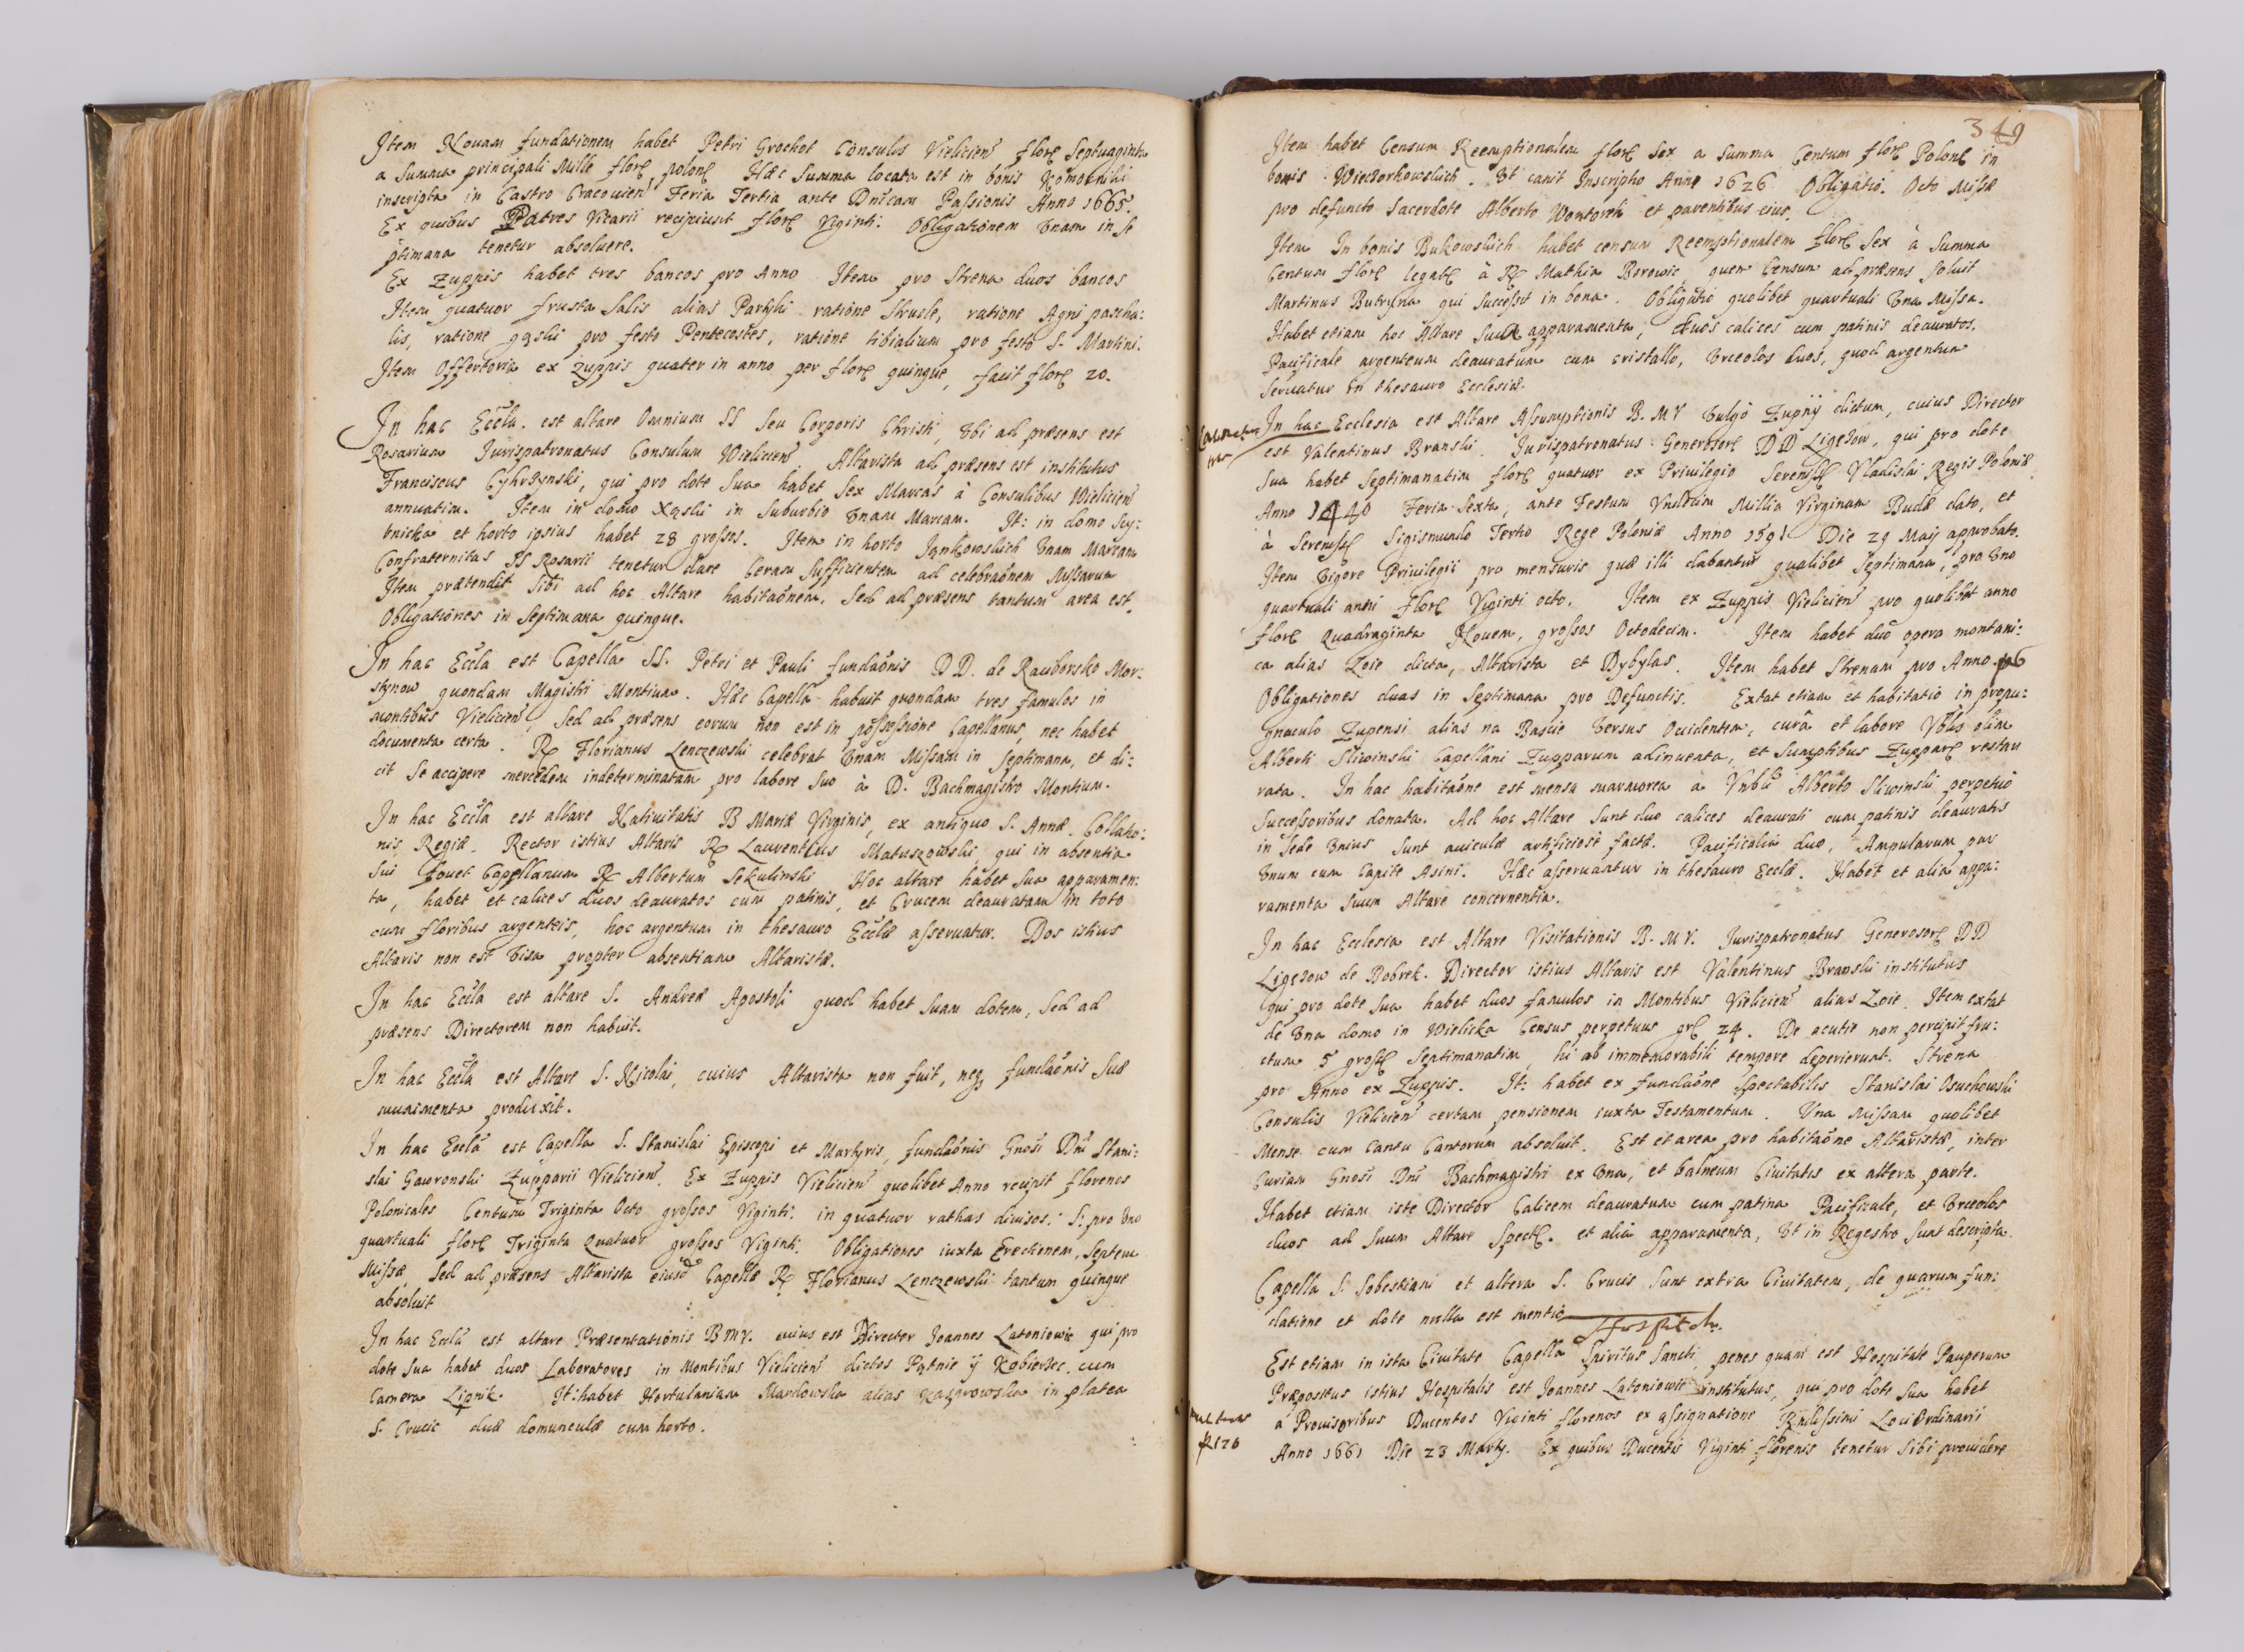 Item Novam fundationem habet Petri Grochot Consulis Vielicien florẽ Septuaginta
a Summa principali Mille florẽ polonẽ Hæc Summa locata est in bonis
inscripta in Castro Cracovien Feria Tertia ante Dnicam Passionis Anno 1665.
Ex quibus Patres Vicarii recipiunt florẽ Viginti. Obligationem Unam in Se
ptimana tenetur absolvere.
Ex Zuppis habet tres bancos pro Anno Item pro Strena duos bancos
Item quatuor frusta Salis alias Partyki ratione Strucle, ratione Agni pascha:
lis, ratione gąski pro festo Pentecostes, ratione tibialium pro festo S. Martini.
Item Offertoria ex zuppis quater in anno per florẽ quinque, facit florẽ 20.
In hac Eccla. est altare Omnium SS seu Corporis Christi, Ubi ad præsens est
Rosarium Jurispatronatus Consulum Wielicien Altarista ad præsens est institutus
Franciscus Cyhrzynski, qui pro dote Sua habet Sex Marcas à Consulibus Wielicien
annuatim. Item in domo Xąski in Suburbio Unam Marcam. It: in domo Scy:
bnicka et horto ipsius habet 28 grossos. Item in horto Jankowskich Unam Marcam
Confraternitas SS Rosarii tenetur dare Ceram Sufficientem ad celebraõnem Missarum
Item prætendit Sibi ad hoc Altare habitaõnem, Sed ad præsens tantum area est.
Obligationes in Septimana quinque.
In hac Eccla est Capella SS. Petri et Pauli fundaõnis DD. de Raciborsko Mor:
stynow quondam Magistri Montium. Hæc Capella habuit quondam tres famulos in
montibus Vielicien, Sed ad præsens eorum non est in possessione Capellanus, nec habet
documenta certa. R. Florianus Lenczewski celebrat Unam Missam in Septimana, et di:
cit Se accipere mercedem indeterminatam pro labore Suo à D. Bachmagistro Montium.
In hac Eccla est altare Nativitatis B Mariæ Virginis, ex antiquo S. Annæ. Collatio:
nis Regiæ. Rector istius Altaris R. Laurentius Matuszowski qui in absentia
Sui fovet Capellanum R. Albertum Sekulinski Hoc altare habet Sua apparamen:
ta, habet et calices duos deauratos cum patinis, et Crucem deauratam in toto
cum floribus argenteis, hoc argentum in thesauro Ecclæ asservatur. Dos istius
Altaris non est Visa propter absentiam Altaristæ.
In hac Eccla est altare S. Andreæ Apostoli quod habet Suam dotem, Sed ad
præsens Directorem non habuit.
In hac Eccla est Altare S. Nicolai, cuius Altarista non fuit, neq fundaõnis Suæ
munimenta produxit.
In hac Eccla est Capella S. Stanislai Episcopi et Martyris, fundaõnis Gnosi Dni Stani:
slai Gawronski Zupparii Vielicien. Ex Zuppis Vielicien quolibet Anno recipit florenos
Polonicales Centum Triginta Octo grossos Viginti. in quatuor rathas divisos. S. pro Uno
quartuali florẽ Triginta Quatuor grossos Viginti. Obligationes iuxta Erectionem, Septem
Missæ, Sed ad præsens Altarista eiusd Capellæ R. Florianus Lenczewski tantum quinque
absolvit
In hac Eccla est altare Præsentationis BMV. cuius est Director Joannes Latoniowic qui pro
dote Sua habet duos Laboratores in Montibus Vielicien dictos Pątnie ÿ Kobierzec. cum
Camera Lipnik. It: habet Hortulaniam Markowska alias Kazprowska in platea
S. Crucis duæ domunculæ cum horto.
349
Item habet Censum Reemptionalem florẽ Sex a Summa Centum florẽ Polonẽ in
bonis Wieczorkowskich. Ut canit Inscriptio Anno 1626 Obligatio. Octo Missæ
pro defuncto Sacerdote Alberto Wontorek et parentibus eius.
Item In bonis Bukowskich habet censum Reemptionalem florẽ Sex à Summa
Centum florẽ legatẽ à R. Mathia Borowic, quem Censum ad præsens solvit
Martinus Butryna qui Successit in bona. Obligatio quolibet quartuali Una Missa.
Habet etiam hoc Altare Sua apparamenta, duos calices cum patinis deauratos.
Pacificale argenteum deauratum cum cristallo, Urceolos duos, quod argentum
Servatur in thesauro Ecclesiæ.
In hac Ecclesia est Altare Assumptionis B. M V Vulgo Zupnÿ dictum, cuius Director
est Valentinus Branski. Jurispatronatus Generosorẽ DD Ligęzow, qui pro dote
Sua habet Septimanatim florẽ quatuor ex Privilegio Sereniss Vladislai Regis Poloniæ
Anno 1440 Feria Sexta, ante Festum Undecim Millia Virginum Budæ dato, et
à Sereniss Sigismundo Tertio Rege Poloniæ Anno 1591 Die 29 Maij approbato.
Item Vigore Privilegii pro mensuris quæ illi dabantur qualibet Septimana, pro Uno
quartuali anni florẽ Viginti octo. Item ex Zuppis Vielicien pro quolibet anno
florẽ Quadraginta Novem, grossos Octodecim. Item habet duo opera montani:
ca alias Zoie dicta, Altarista et Dybylas. Item habet Strenam pro Anno
Obligationes duas in Septimana pro Defunctis. Extat etiam et habitatio in propu:
gnaculo Zupensi alias na Baszie Versus Occidentem, cura et labore olim
Alberti Sliwinski Capellani Zupparum adinventa, et Sumptibus Zupparẽ restau
rata. In hac habitaõne est mensa marmorea a Alberto Sliwinski perpetuo
Successoribus donata. Ad hoc Altare Sunt duo calices deaurati cum patinis deauratis
in Sede Unius Sunt aviculæ artificiose factæ. Pacificalia duo, Ampularum par
Unum cum Capite Asini. Hæc asservantur in thesauro Ecclæ. Habet et alia appa:
ramenta Suum Altare concernentia.
In hac Ecclesia est Altare Visitationis B. M V. Jurispatronatus Generosorẽ DD
Ligęzow de Bobrek. Director istius Altaris est Valentinus Branski institutus
qui pro dote Sua habet duos famulos in Montibus Vielicien alias Zoie. Item extat
de Una domo in Wielicka Census perpetuus grẽ 24. De acutie non percipit fru:
ctum 5 grossẽ Septimanatim, hi ab immemorabili tempore deperierunt. Strena
pro Anno ex Zuppis. It: habet ex fundaõne Spectabilis Stanislai Osuchowski
Consulis Vielicien certam pensionem iuxta Testamentum. Una Missam quolibet
Mense cum Cantu Cantorum absolvit. Est et area pro habitaõne Altaristæ, inter
Curiam Gnosi Dni Bachmagistri ex Una, et balneum Civitatis ex altera parte.
Habet etiam iste Director Calicem deauratum cum patina Pacificale, et Urceolos
duos ad Suum Altare Spectẽ. et alia apparamenta, Ut in Regestro Sunt descripta.
Capella S. Sebestiani et altera S. Crucis Sunt extra Civitatem, de quarum fun:
datione et dote nulla est mentio
Est etiam in ista Civitate Capella Spiritus Sancti, penes quam est Hospitale Pauperum
Præpositus istius Hospitalis est Joannes Latoniowic institutus, qui pro dote Sua habet
a Provisoribus Ducentos Viginti florenos ex assignatione Loci Ordinarii
Anno 1661 Die 23 Martÿ. Ex quibus Ducentis Viginti florenis tenetur Sibi providere